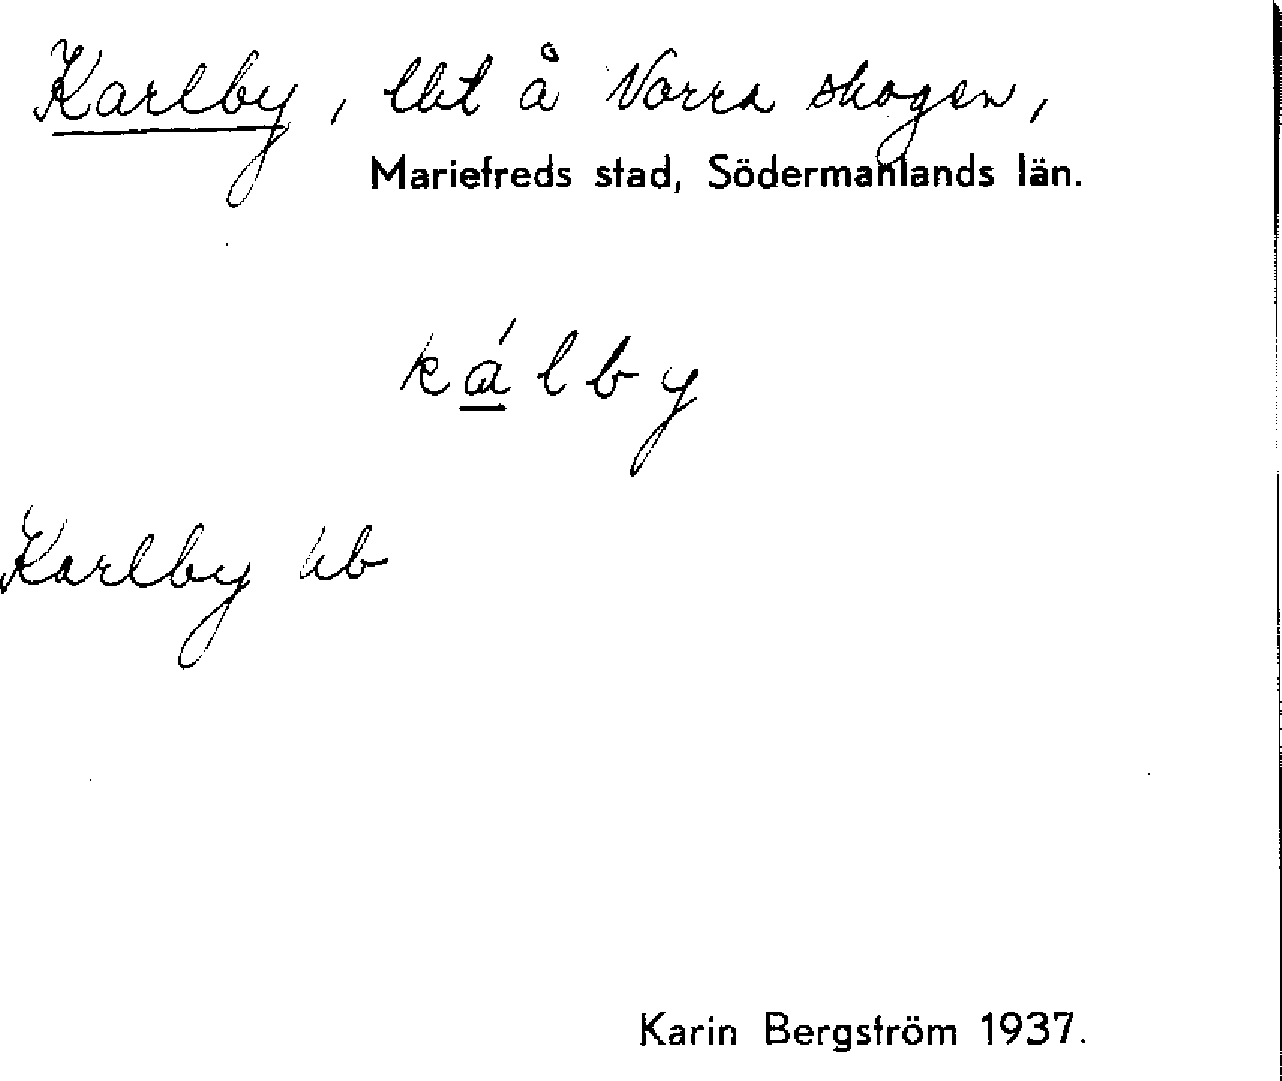 Karlby, lht å Norra skogen,
Mariefreds stad, Södermanlands län.
kálby
Karlby hb
Karin Bergström 1937.